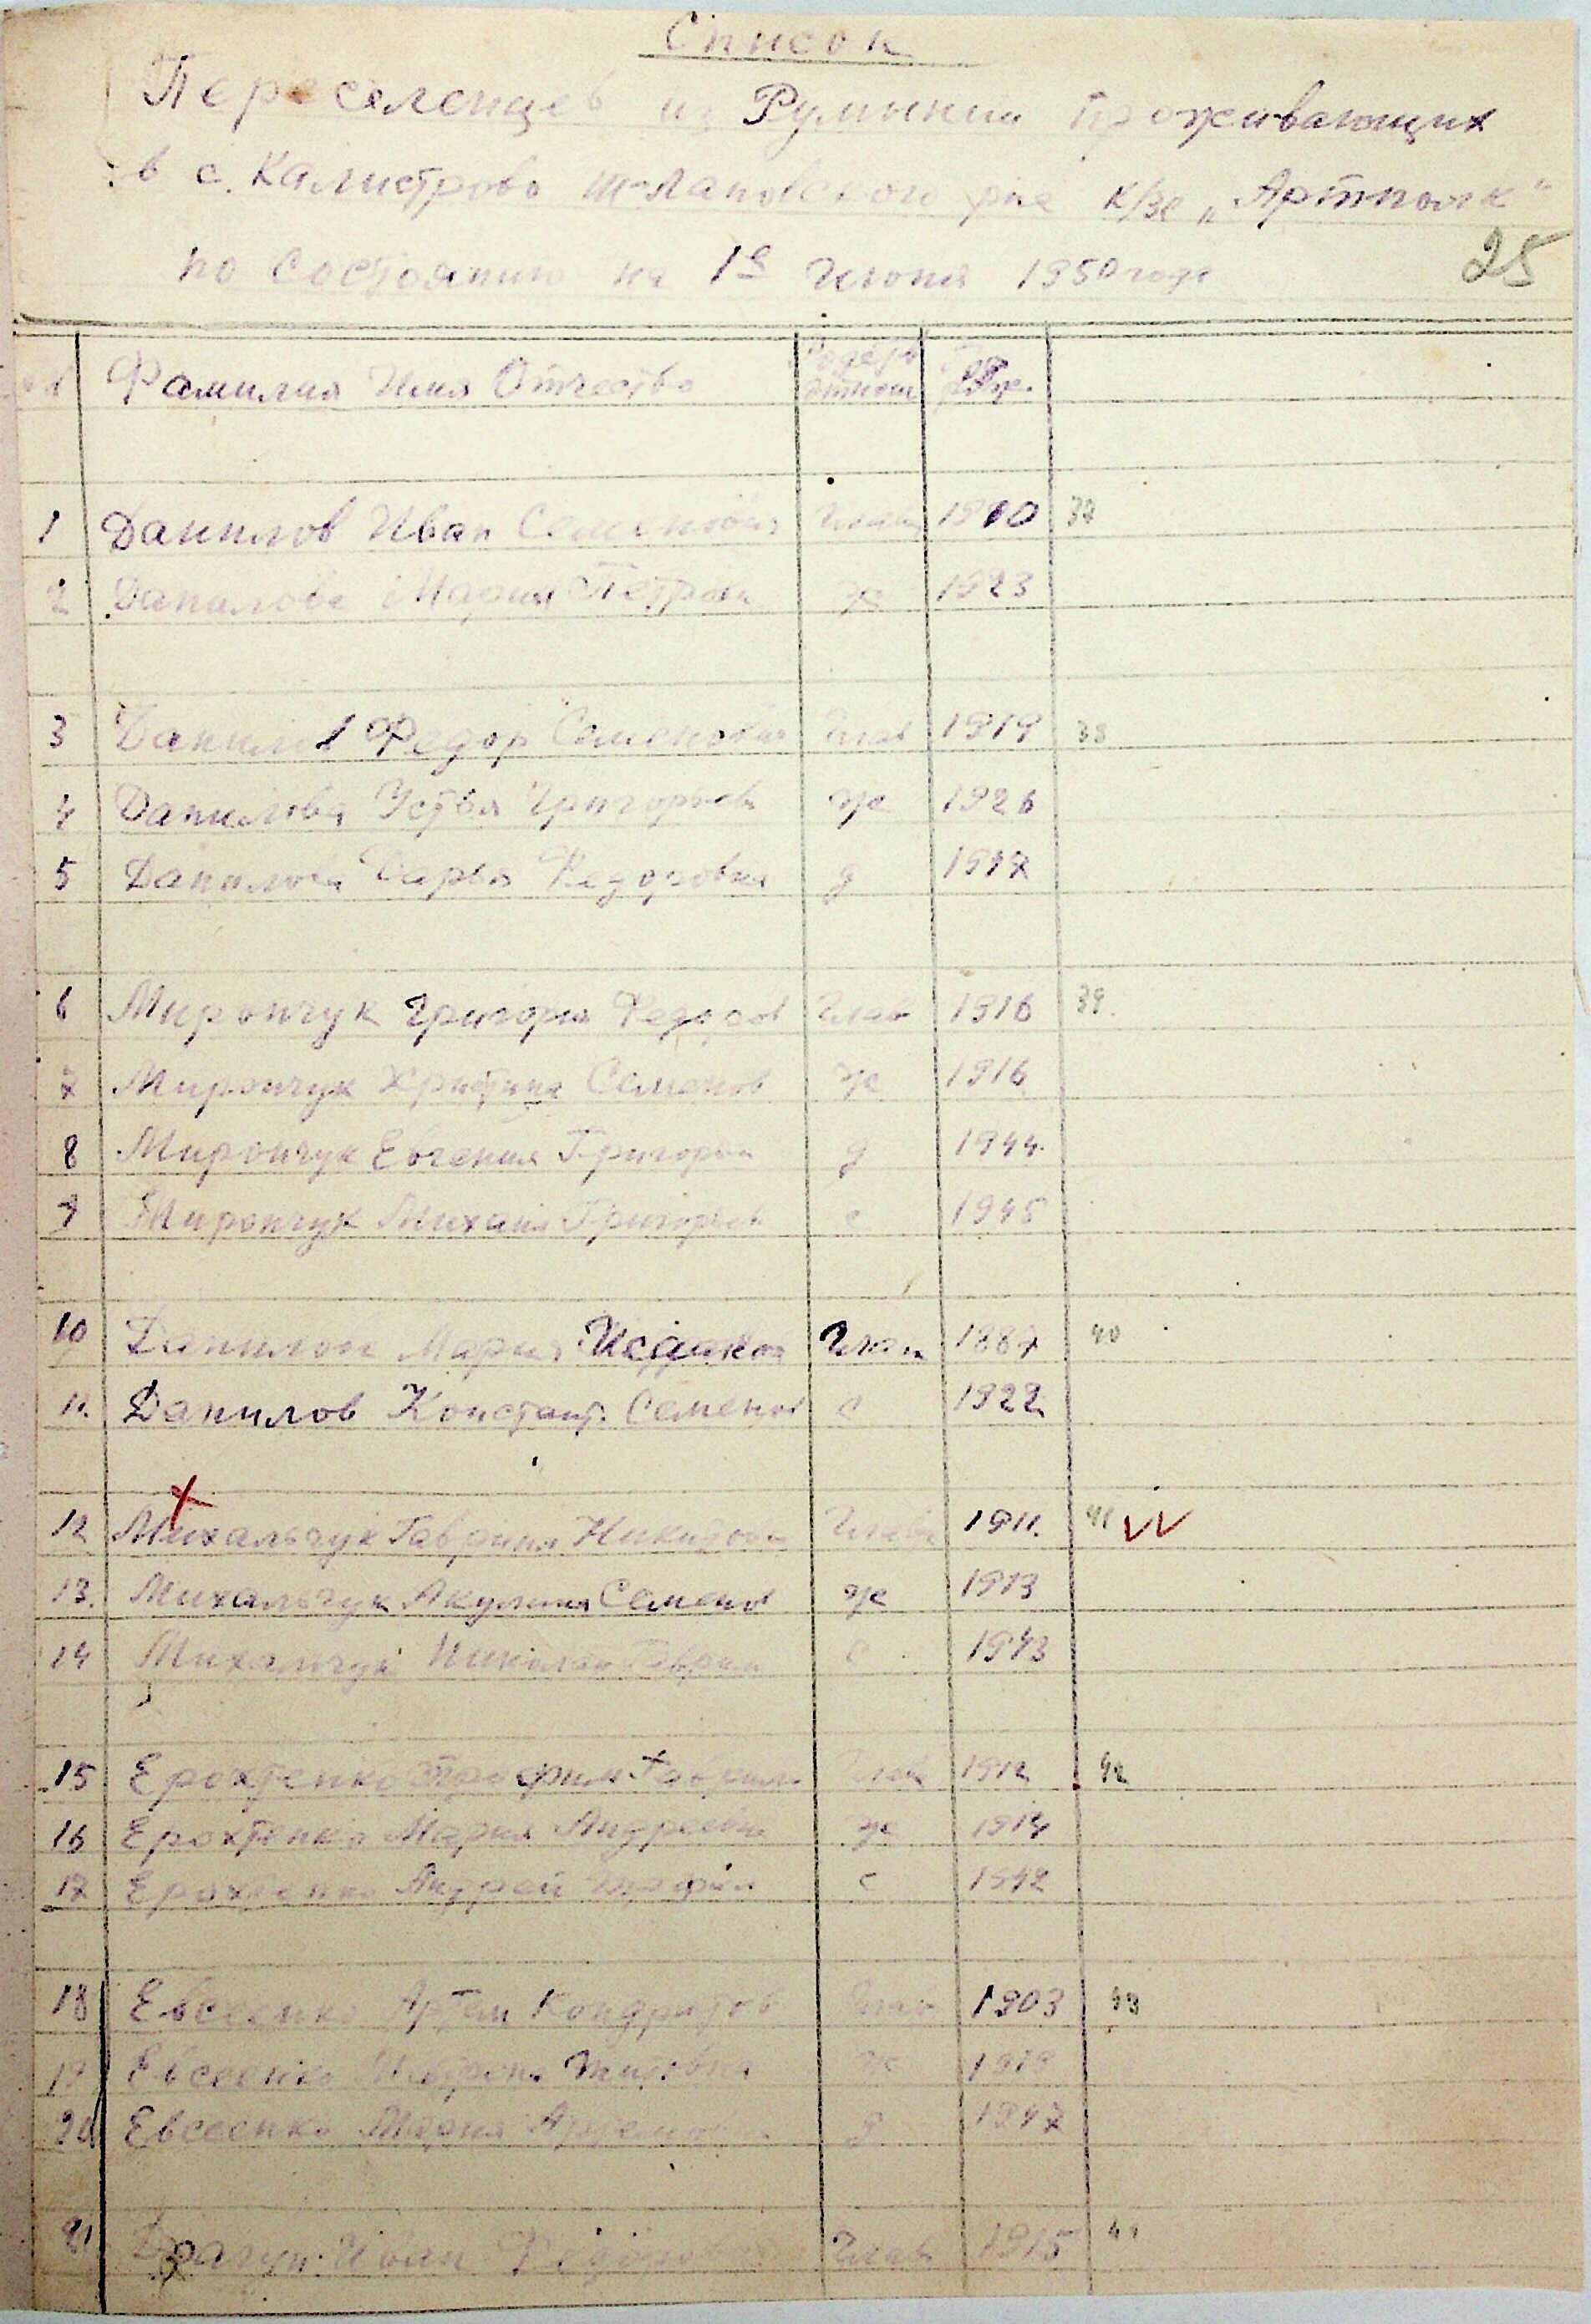 Список
Переселенцев из Румынии проживающих
в с. Калистрово р-на к/зе „Артполк"
по состоянию на 1е Июня 1950 года
25
Фамилия Имя Отчество Родств отнош Г. Рж.
1 Данилов Иван Семенович Глав 1910 37
2 Данилова Мария Петров ж 1923
3 Данилов Федор Семенович Глав 1919 38
4 Данилова Устья Григорьев ж 1926
5 Данилова Дарья Федоровна д 1947
6 Мирончук Григорий Федоров Глав 1916 39
7 Мирончук Христина Семенов ж 1916
8 Мирончук Евгения Григорьев д 1944
9 Мирончук Михаил Григорьев с 1945
10 Данилов Мария Глав 1887 40
11. Данилов Констант. Семенов с 1922
12 Михальчук Гаврил Никитович Глава 1911. 41
13. Михальчук Акулина Семенов ж 1913
14 Михальчук Николай Гаврил с 1943
15 Ерохтенко Трофим Гаврил Глав 1912 42
16 Ерохтенко Мария Андреевн ж 1914
17 Ерохтенко Андрей Трофим с 1942
18 Евсеенко Артем Кондратов Глав 1903 43
19 Евсеенко Матрена Титовна ж 1919
20 Евсеенко Мария Артемовн д 1947
21 Иван Глав 1915 44